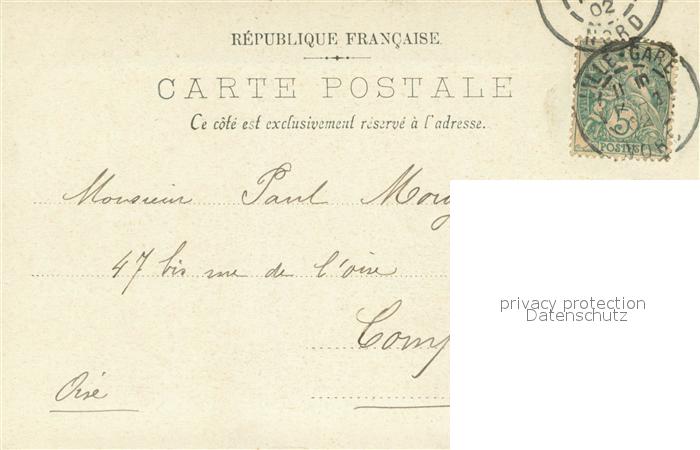 02
NORD
RÉPUBLIQUE FRANÇAISE
LILLE-GARE
CARTE POSTALE
5c
POSTES
Ce côté est exclusivement réservé à l'adresse.
Monsieur Paul
47 bis rue de l'oise
privacy protection
Datenschutz
Comp
Oise